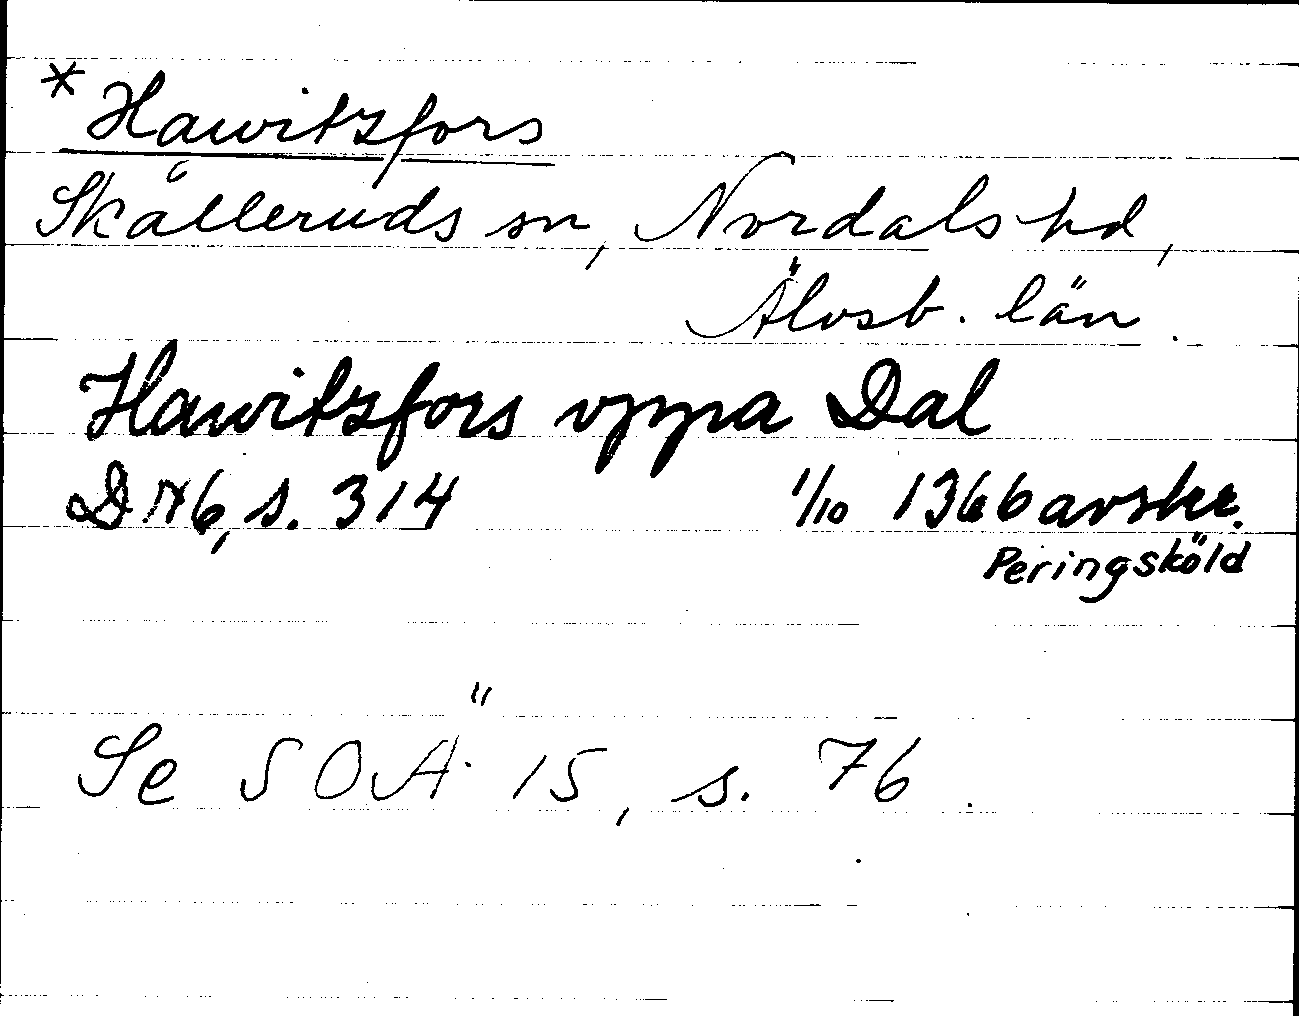 * Hawitzfors
Skålleruds sn, Nordals hd,
Älvsb. län.
Hawitzfors vppa Dal
DN6, s. 314 1/10 1366 avskr.
Peringsköld
Se SOÄ 15, s. 76.